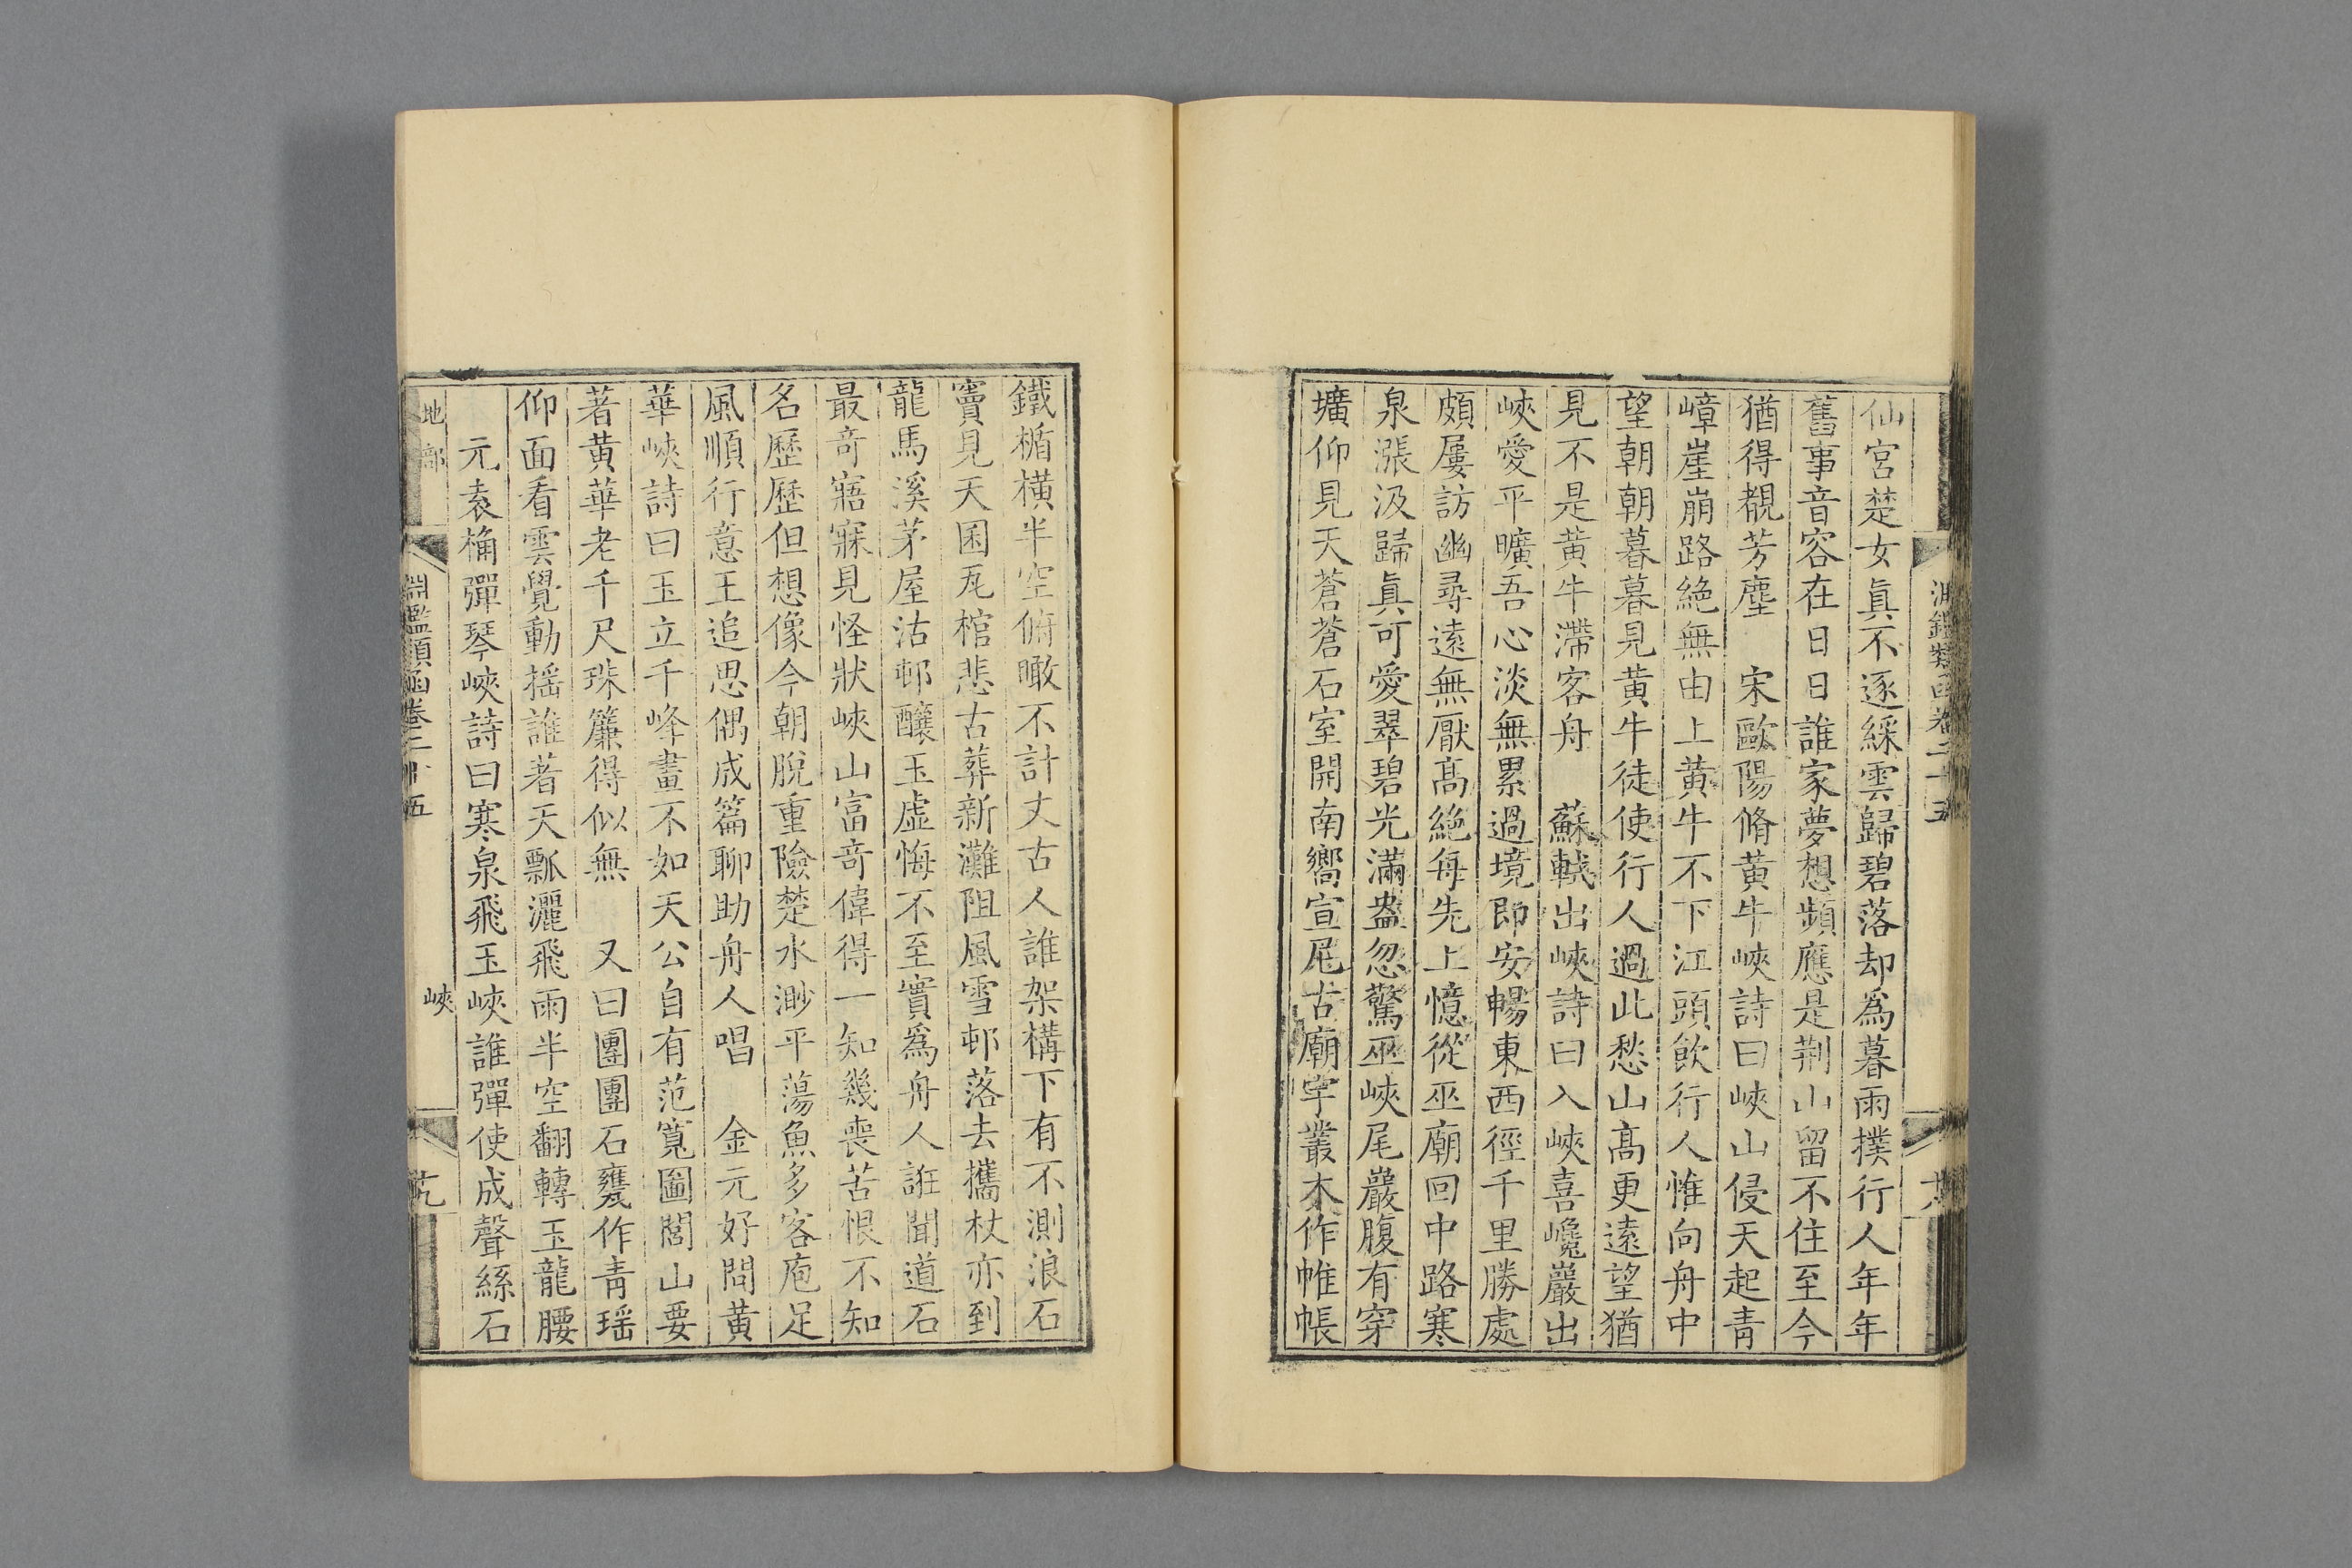 仙宮楚女眞不逐綵雲歸碧落却爲暮雨撲行人年年
舊事音容在日日誰家夢想頻應是荆山留不住至今
猶得覩芳塵　宋歐陽脩黄牛峽詩曰峽山侵天起青
嶂崖崩路絶無由上黄牛不下江頭飲行人惟向舟中
望朝朝暮暮見黄牛徒使行人過此愁山髙更遠望猶
見不是黄牛滯客舟　蘇軾出峽詩曰入峽喜巉巖出
峽愛平曠吾心淡無累過境即安暢東西徑千里勝處
頗屢訪幽尋遠無厭髙絶每先上憶從巫廟回中路寒
泉漲汲歸眞可愛翠碧光滿盎忽驚巫峽尾巖腹有穿
壙仰見天蒼蒼石室開南嚮宣尼古廟宇叢木作帷帳
鐵楯橫半空俯瞰不計丈古人誰架構下有不測浪石
竇見天囷瓦棺悲古葬新灘阻風雪邨落去攜杖亦到
龍馬溪茅屋沽邨釀玉虛悔不至實爲舟人誑聞道石
最竒寤寐見怪狀峽山富竒偉得一知幾喪苦恨不知
名歷歷但想像今朝脫重險楚水渺平蕩魚多客庖足
風順行意王追思偶成篇聊助舟人唱　金元好問黄
華峽詩曰玉立千峰畫不如天公自有范寬圖閻山要
著黄華老千尺珠簾得似無　又曰團團石甕作青瑶
仰面看雲覺動揺誰著天瓢灑飛雨半空翻轉玉龍腰
元袁桷彈琴峽詩曰寒泉飛玉峽誰彈使成聲絲石
地部
淵鑑類函卷二十五
峽